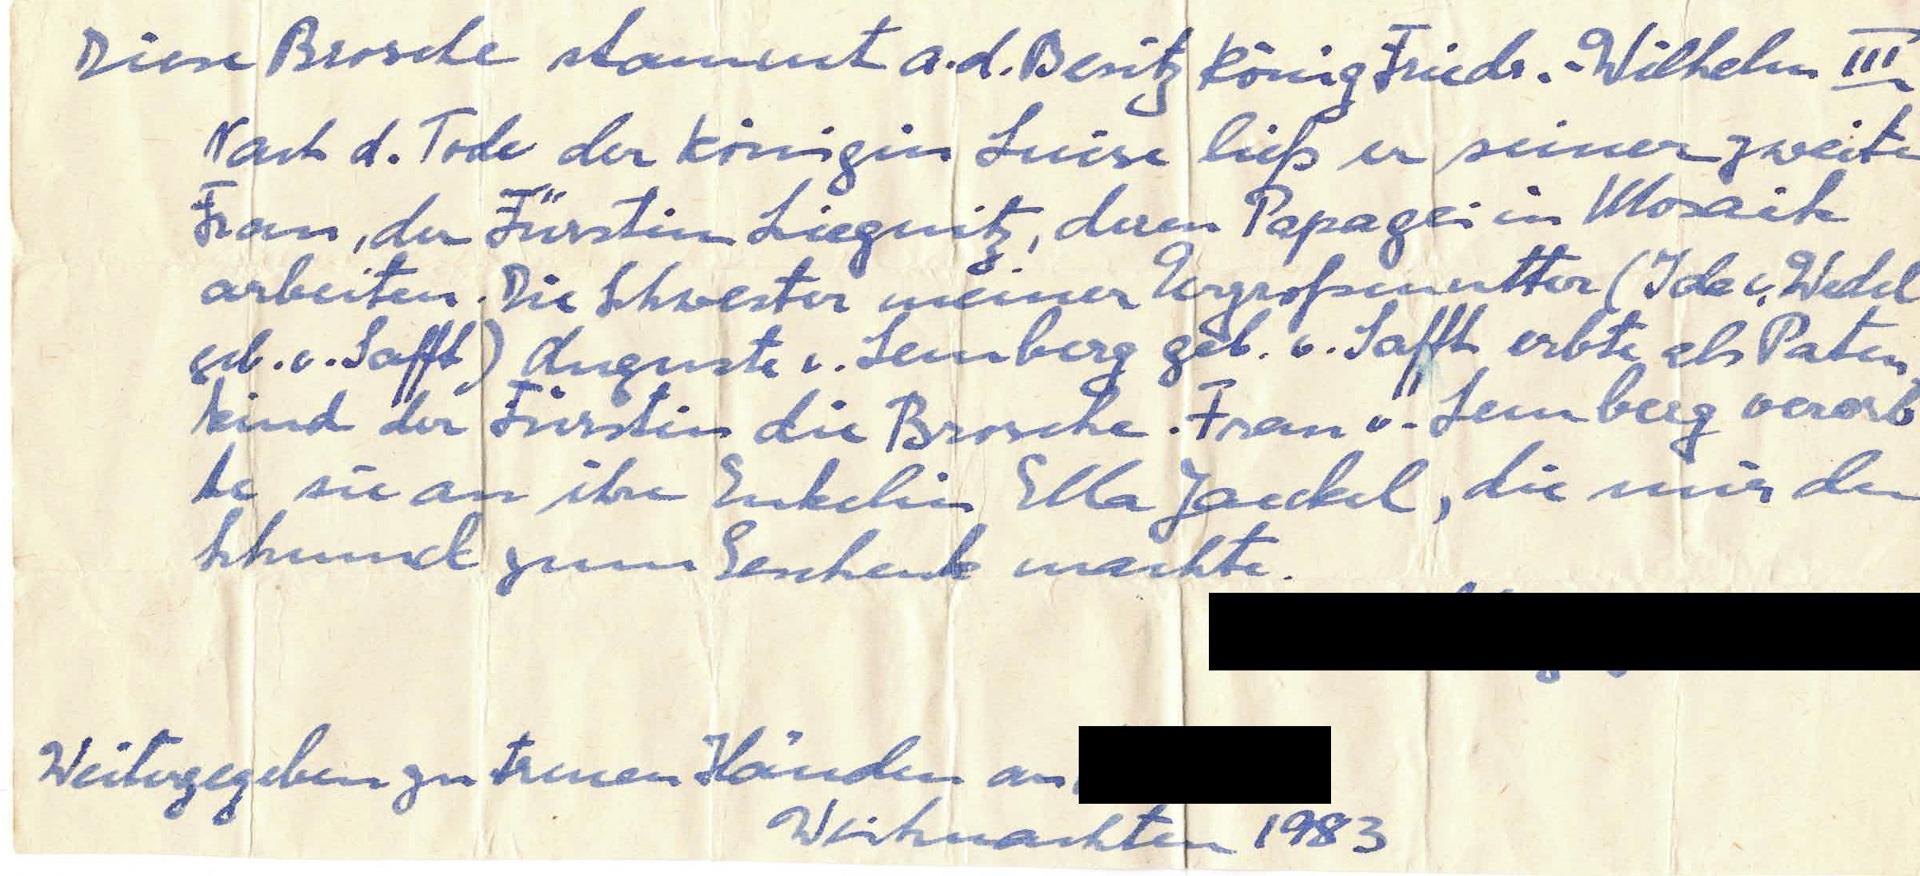 Diese Brosche stammt a.d. Besitz König Friedr.-Wilhelm III
Nach d. Tode der Königin Luise ließ er seiner zweite
Frau, der Fürstin Liegnitz, deren Papagei in Mosaik
arbeiten. Die Schwester meiner Urgroßmutter (Ida v. Wedel
geb. v. Safft) Auguste v. Lemberg geb. v. Safft erbte als Paten
kind der Fürstin die Brosche. Frau v. Lemberg vererb
te sie an ihre Enkelin Ella Jaeckel, die mir den
Schmuck zum Geschenk machte.
Weitergegeben zu treuen Händen an
Weihnachten 1983